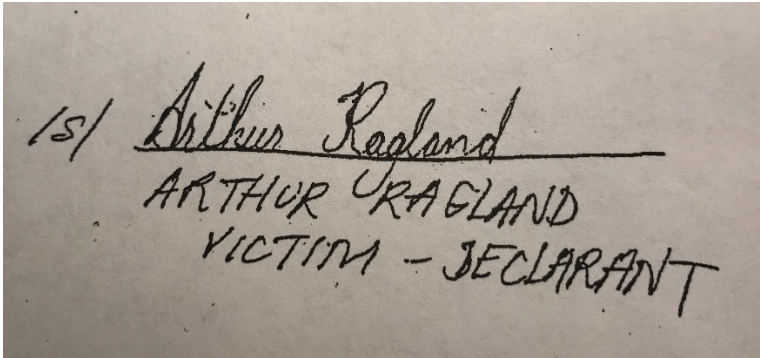 /s/ Arthur Ragland
ARTHUR RAGLAND
VICTIM - DECLARANT